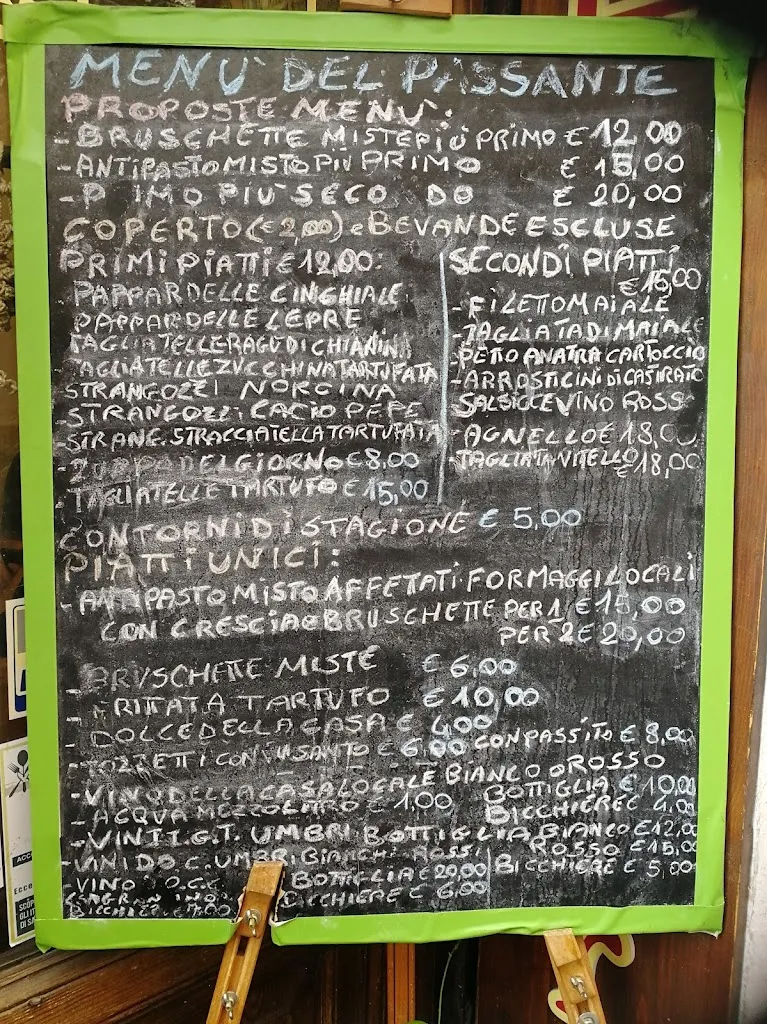 MENU' DEL PASSANTE
PROPOSTE MENU':
- BRUSCHETTE MISTE PIÙ PRIMO € 12,00
- ANTIPASTO MISTO PIÙ PRIMO € 15,00
- P IMO PIU' SECO DO € 20,00
COPERTO (€ 2,00) e BEVANDE ESCLUSE
PRIMI PIATTI € 12,00:
- PAPPARDELLE CINGHIALE
PAPPARDELLE LEPRE
TAGLIATELLE RAGU DI CHIANINA
- TAGLIATELLE ZUCCHINA TARTUFATA
STRANGOZZI NORCINA
- STRANGOZZI CACIO PEPE
- STRANG. STRACCIATELLA TARTUFATA
- ZUPPA DEL GIORNO € 8,00
- TAGLIATELLE TARTUFO € 15,00
SECONDI PIATTI
€ 15,00
- FILETTO MAIALE
- TAGLIATA DI MAIALE
- PETTO ANATRA CARTOCCIO
- ARROSTICINI DI CASTRATO
SALSICCE VINO ROSSO
- AGNELLO € 18,00
- TAGLIATA VITELLO
€ 18,00
CONTORNI DI STAGIONE € 5,00
PIATTI UNICI:
- ANTIPASTO MISTO AFFETTATI FORMAGGI LOCALI
CON CRESCIA e BRUSCHETTE PER 1 € 15,00
PER 2 € 20,00
- BRUSCHETTE MISTE € 6,00
- FRITTATA TARTUFO € 10,00
- DOLCE DELLA CASA € 4,00
- TOZZETTI CON VINSANTO € 6,00 CON PASSITO € 8,00
- VINO DELLA CASA LOCALE BIANCO o ROSSO
BOTTIGLIA € 10,00
- ACQUA MEZZO LITRO € 1,00 BICCHIERE € 4,00
- VINI I.G.T. UMBRI BOTTIGLIA BIANCO € 12,00
ROSSO € 15,00
- VINI DO C. UMBRI BIANCHI ROSSI BICCHIERE € 5,00
BOTTIGLIA € 20,00
- VINO D.O.C.G. BICCHIERE € 6,00
BICCHIERE
ACC
Ecce
SCOP
GLI IT
DI SA